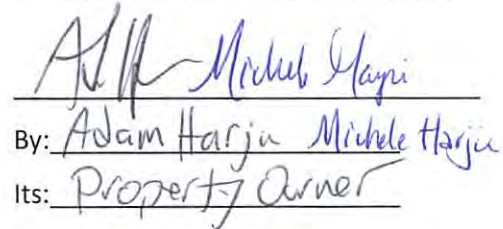 Michele
By: Adam Harju Michele Harju
Its: Property Owner